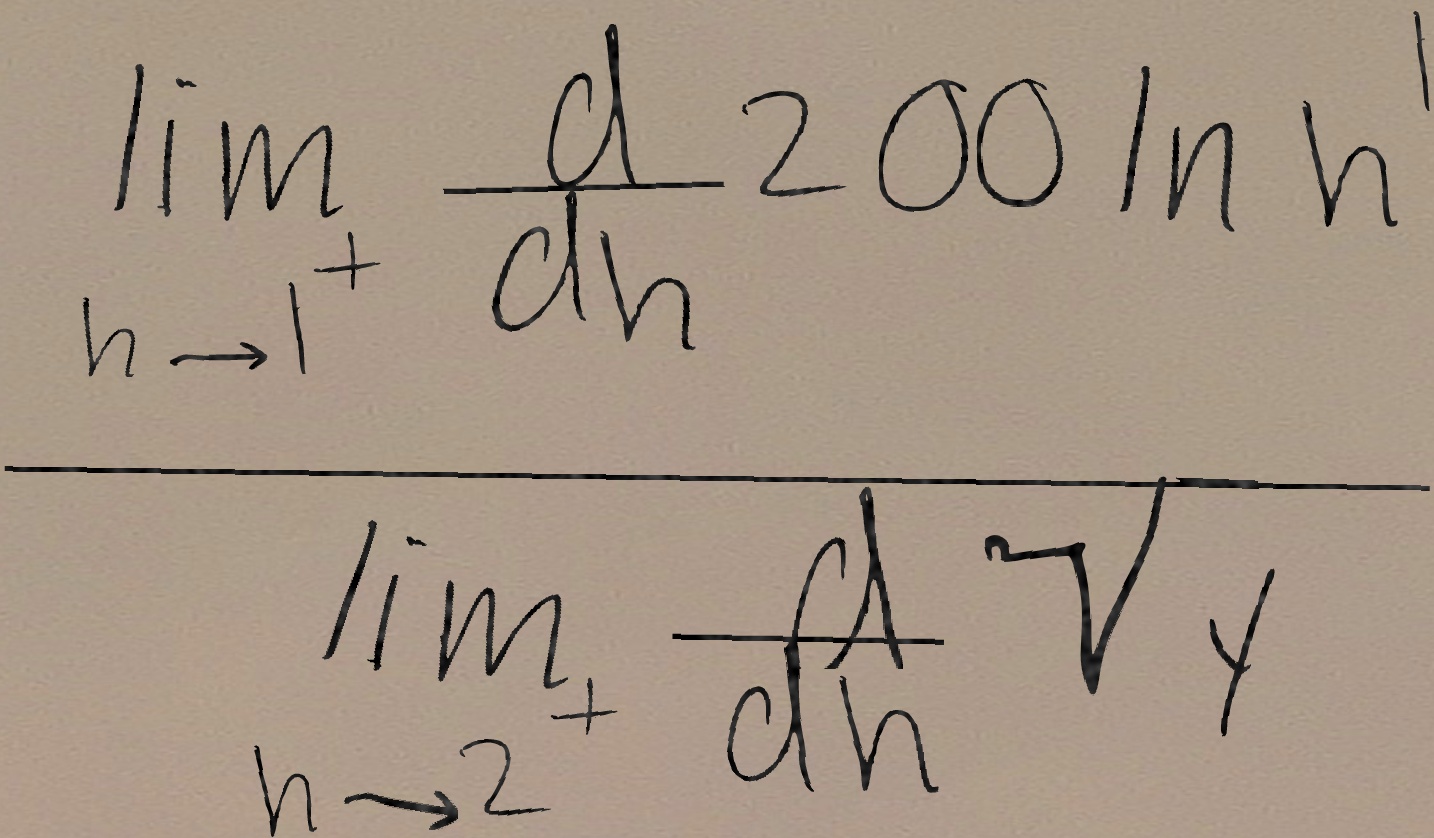 lim h→1⁺ d/dh 200 ln h¹
lim h→2⁺ d/dh √y